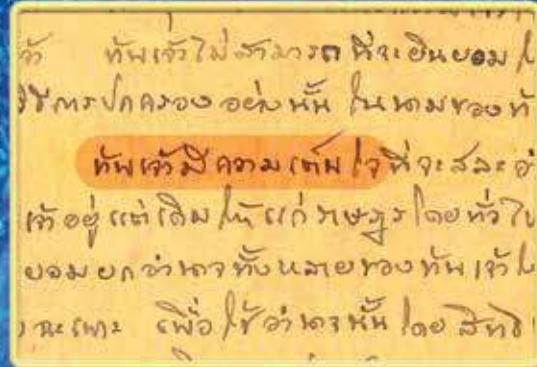 จ้า ข้าพเจ้าไม่สามารถที่จะยินยอม
วิธีการปกครองอย่างนั้น ในนามของ
ข้าพเจ้ามีความเต็มใจที่จะสละ
เจ้าอยู่แต่เดิมให้แก่ราษฎรโดยทั่วไป
ยอมยกอำนาจทั้งหลายของข้าพเจ้า
ฉะเพาะ เพื่อใช้อำนาจนั้นโดยสิทธิ